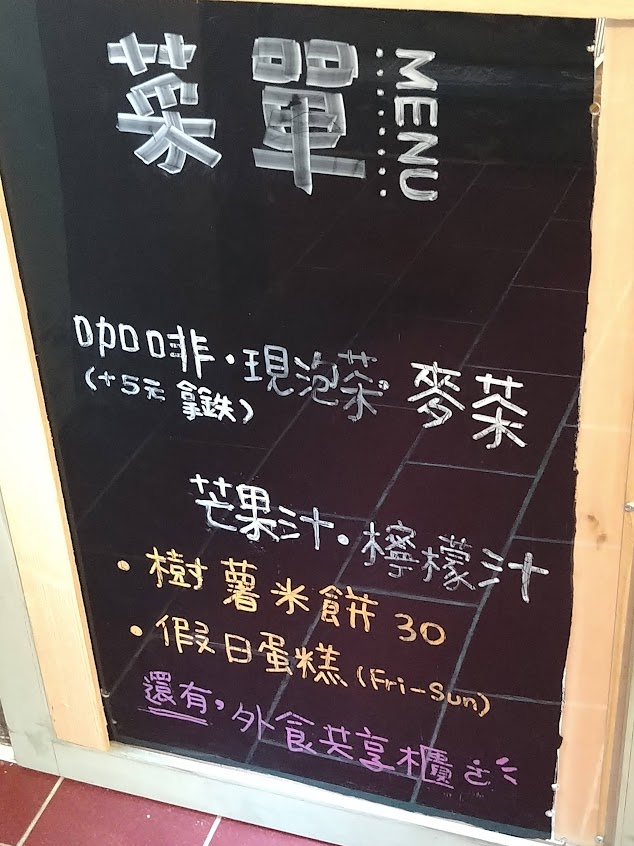 菜單 MENU
咖啡·現泡茶 麥茶
(+5元 拿鐵)
芒果汁·檸檬汁
·樹薯米餅 30
·假日蛋糕(Fri-Sun)
還有,外食共享櫃